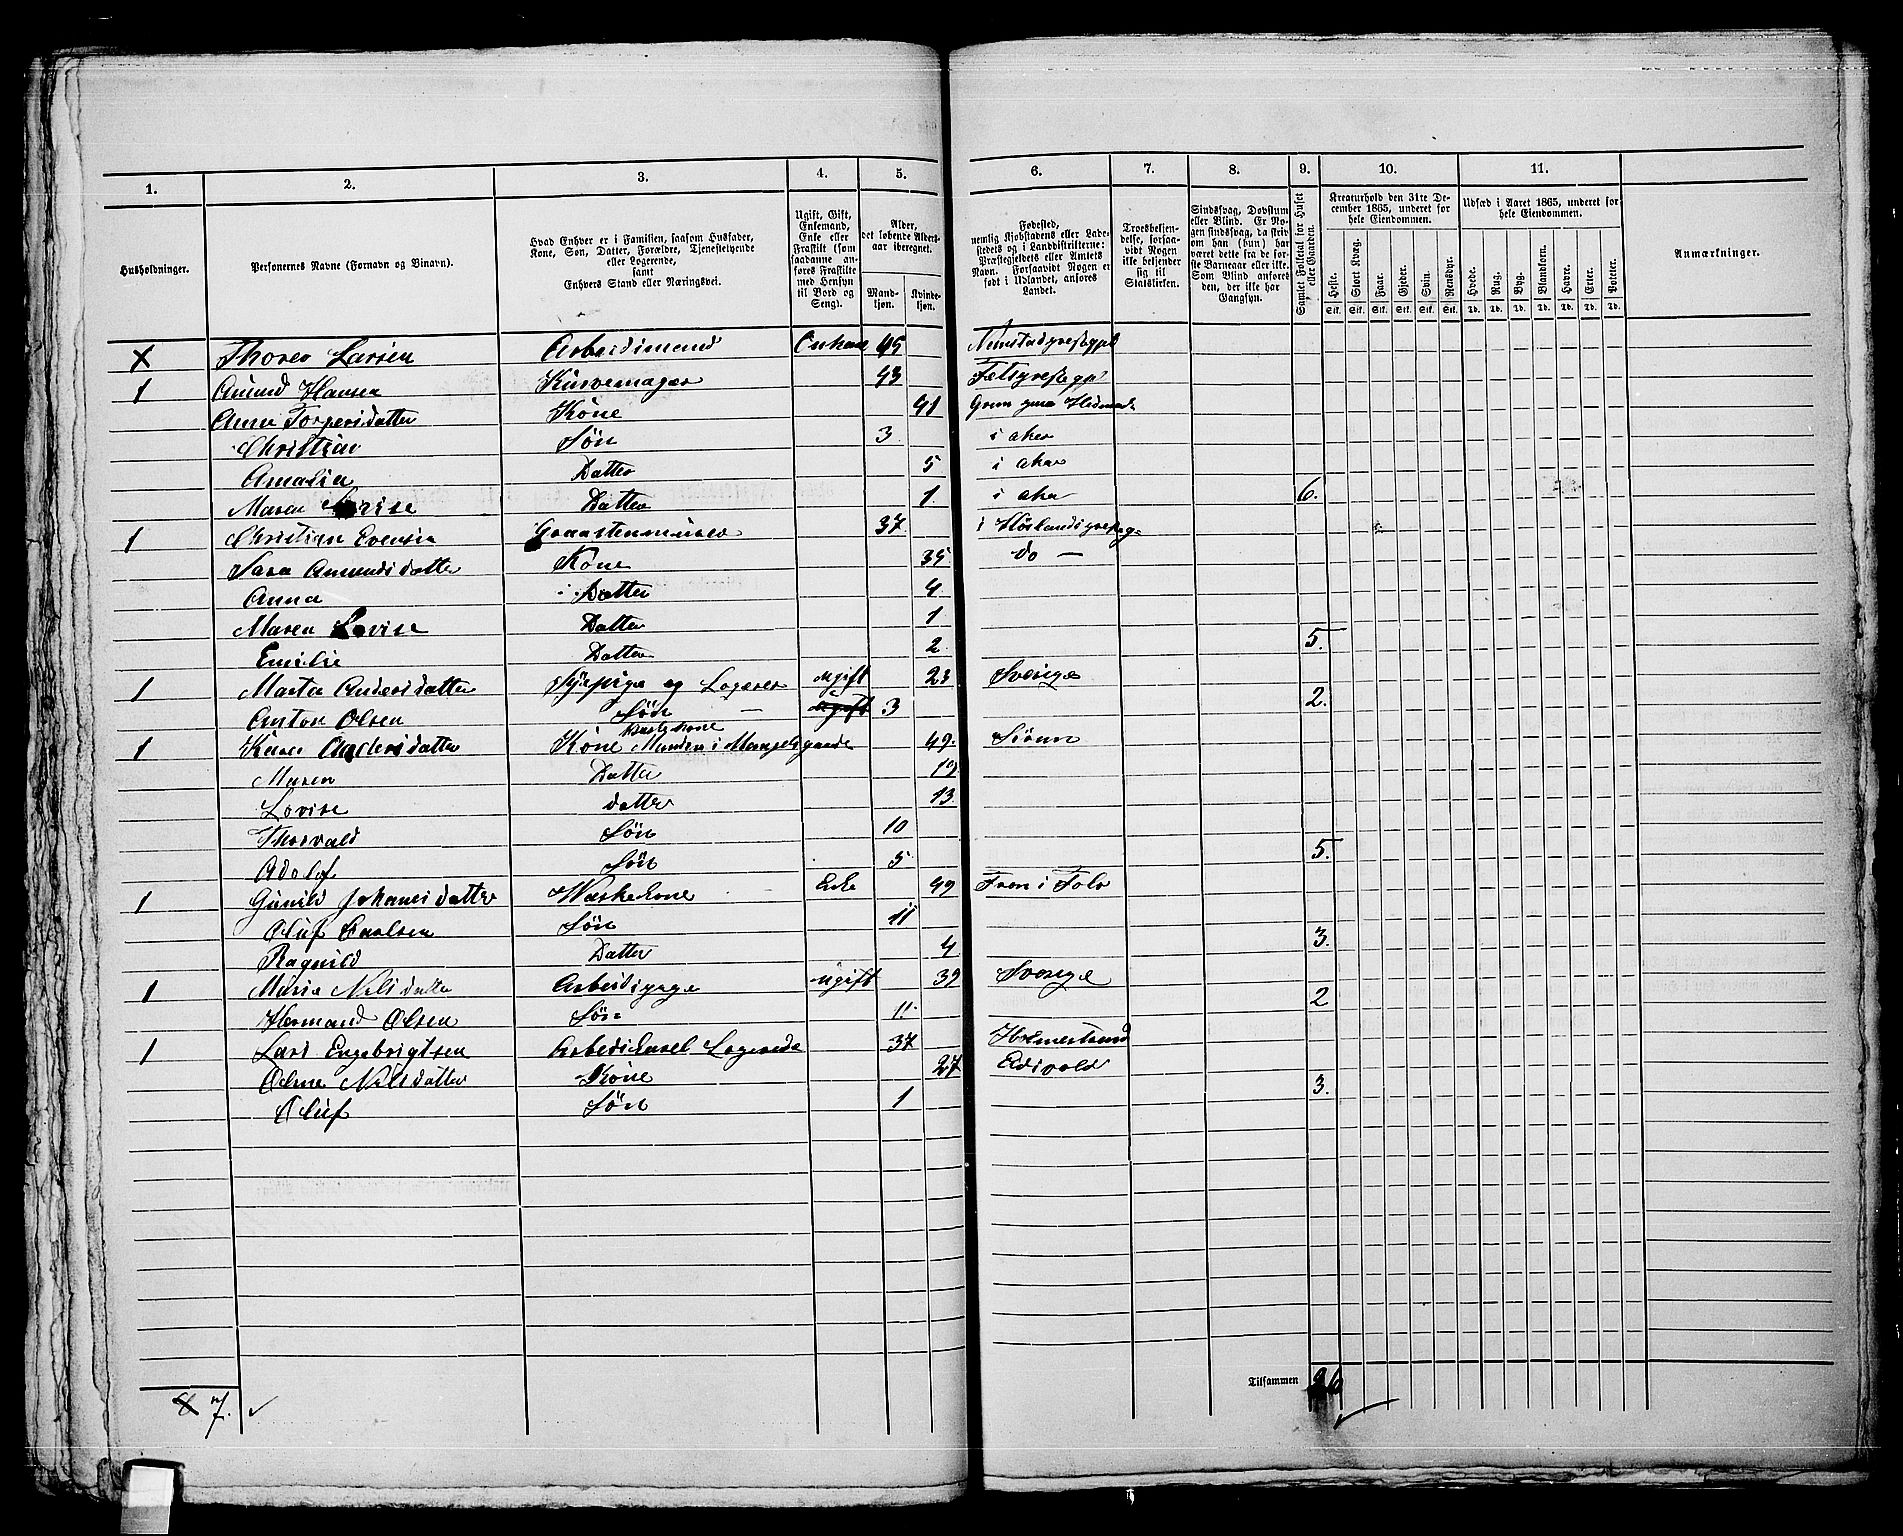 1. 2. 3. 4. 5. 6. 7. 8. 9. 10. 11.
Husholdninger.
Personernes Navne (Fornavn og Binavn).
Hvad Enhver er i Familien, saasom Husfader,
Kone, Søn, Datter, Forældre, Tjenestetyende
eller Logerende,
samt
Enhvers Stand eller Næringsvei.
Ugift, Gift,
Enkemand,
Enke eller
Fraskilt (som
saadanne an-
føres Fraskilte
med Hensyn
til Bord og
Seng).
Alder,
det løbende Alders-
aar iberegnet.
Mand-
kjøn.
Kvinde-
kjøn.
Fødested,
nemlig Kjøbstadens eller Lade-
stedets og i Landdistrikterne:
Præstegjeldets eller Amtets
Navn. Forsaavidt Nogen er
født i Udlandet, anføres
Landet.
Troesbekjen-
delse, forsaa-
vidt Nogen
ikke bekjender
sig til
Statskirken.
Sindssvag, Døvstum
eller Blind. Er No-
gen sindssvag, da skriv
om han (hun) har
været dette fra de før-
ste Barneaar eller ikke.
Som Blind anføres
den, der ikke har
Gangsyn.
Samlet Folketal for Huset
eller Gaarden.
Kreaturhold den 31te De-
cember 1865, underet for
hele Eiendommen.
Heste. Stort Kvæg. Faar. Gjeder. Sviin. Rensdyr.
Stk. Stk. Stk. Stk. Stk. Stk.
Udsæd i Aaret 1865, underet for
hele Eiendommen.
Hvede. Rug. Byg. Blandkorn. Havre. Erter. Poteter.
Td. Td. Td. Td. Td. Td. Td.
Anmærkninger.
X Thorer Larsen Arbeidsmand 45
1 Amund Hansen Kurvemager 43
Anna Torpersdatter Kone 41
Christian Søn 3 i aker
Amalia Datter 5 i aker
Maren Lovise Datter 1. i aker 6.
1 Christian Evensen Graastensmurer 37
Sara Amundsdatter Kone 35 do —
Anna Datter 4
Maren Lovise Datter 1
Emilie Datter 2 5.
1 Marta Andersdatter Sypige og Logerer ugift 23 Sverige
Anton Olsen Søn — ugift 3 2.
1 Karen Andersdatter Kone Manden i Mangelsgaarde 49. Sörum
Maren Datter 19
Lovise datter 13
Thorvald Søn 10
Adolf Søn 5 5.
1 Gunild Johanesdatter Waskekone Enke 49 Fron i Folo
Oluf Søn 11
Ragnild Datter 4 3.
1 Maria Nilsdatter Arbeidspige ugift 39 Sverige
Hermand Olsen Søn 11. 2
1 Lars Engebrigtsen Logerende 37 Holmestrand
Nilsdatter Kone 27 Edsvold
Oluf Søn 1 3.
Tilsammen 26
8 7.